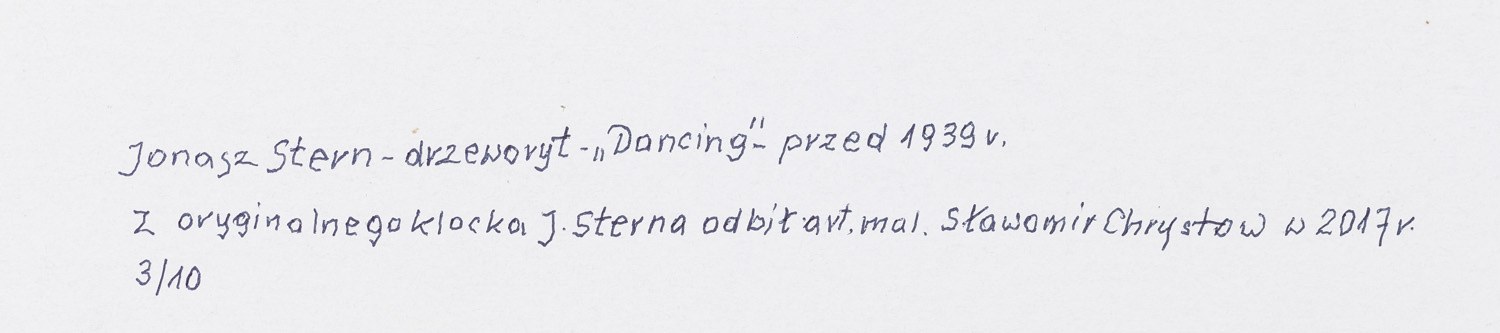 Jonasz Stern - drzeworyt - „Dancing” - przed 1939 r.
Z oryginalnego klocka J. Sterna odbił art. mal. Sławomir Chrystow w 2017 r.
3/10